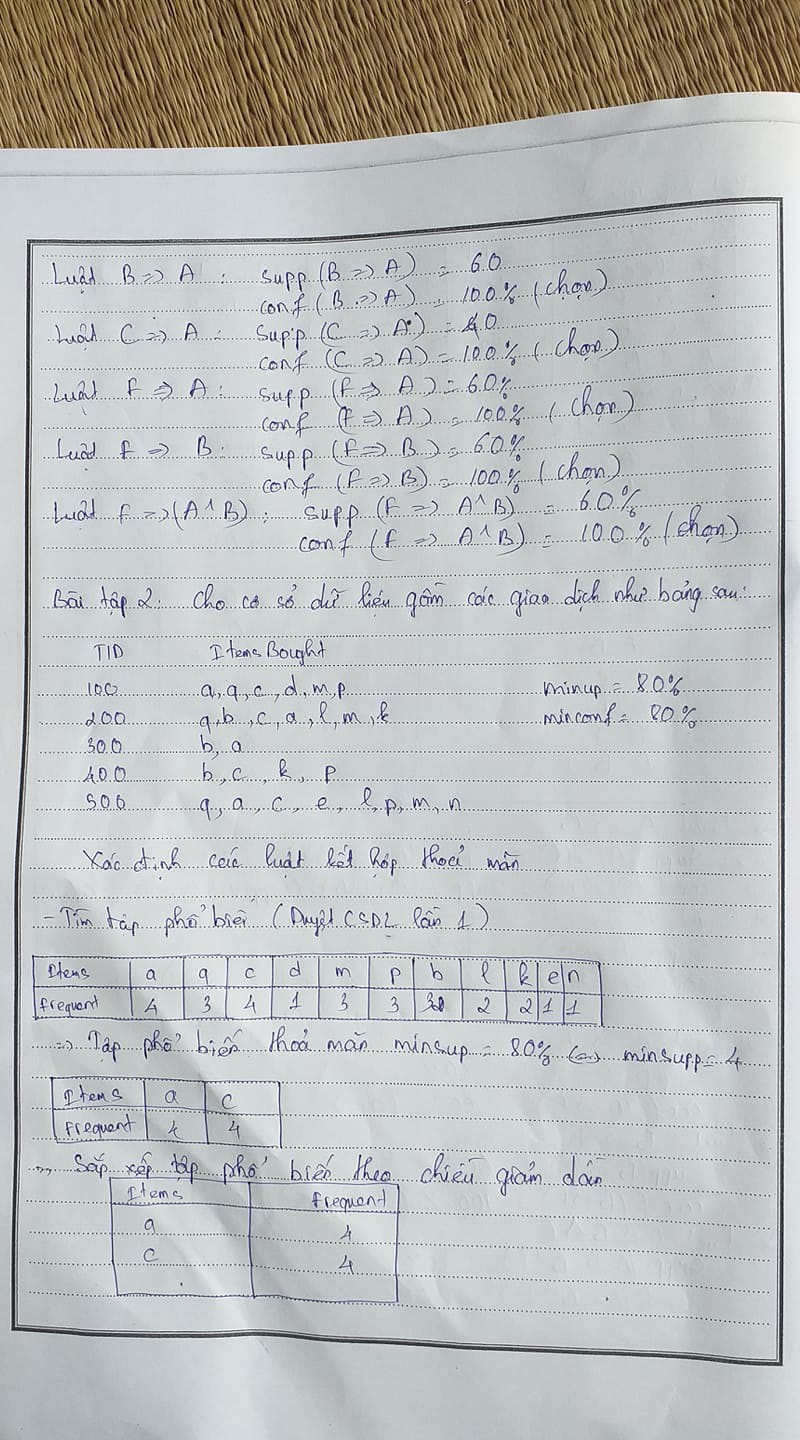 Luật B => A : Supp (B => A) = 60
conf (B => A) = 100% (chọn)
Luật C => A : Supp (C => A) = 40
conf (C => A) = 100% (chọn)
Luật F => A : Supp (F => A) = 60%
conf (F => A) = 100% (chọn)
Luật F => B : Supp (F => B) = 60%
conf (F => B) = 100% (chọn)
Luật F => (A ^ B) : Supp (F => A ^ B) = 60%
conf (F => A ^ B) = 100% (chọn)
Bài tập 2: Cho cơ sở dữ liệu gồm các giao dịch như bảng sau:
TID Items Bought
100 a, q, c, d, m, p minup = 80%
200 q, b, c, a, l, m, k minconf = 80%
300 b, a
400 b, c, k, p
500 q, a, c, e, l, p, m, n
Xác định các luật kết hợp thoả mãn
- Tìm tập phổ biến (Duyệt CSDL lần 1)
Items a q c d m p b l k e n
frequent 4 3 4 1 3 3 3 2 2 1 1
=> Tập phổ biến thoả mãn minsup = 80% <=> minsupp = 4
Items a c
frequent 4 4
=> Sắp xếp tập phổ biến theo chiều giảm dần
Items frequent
a 4
c 4